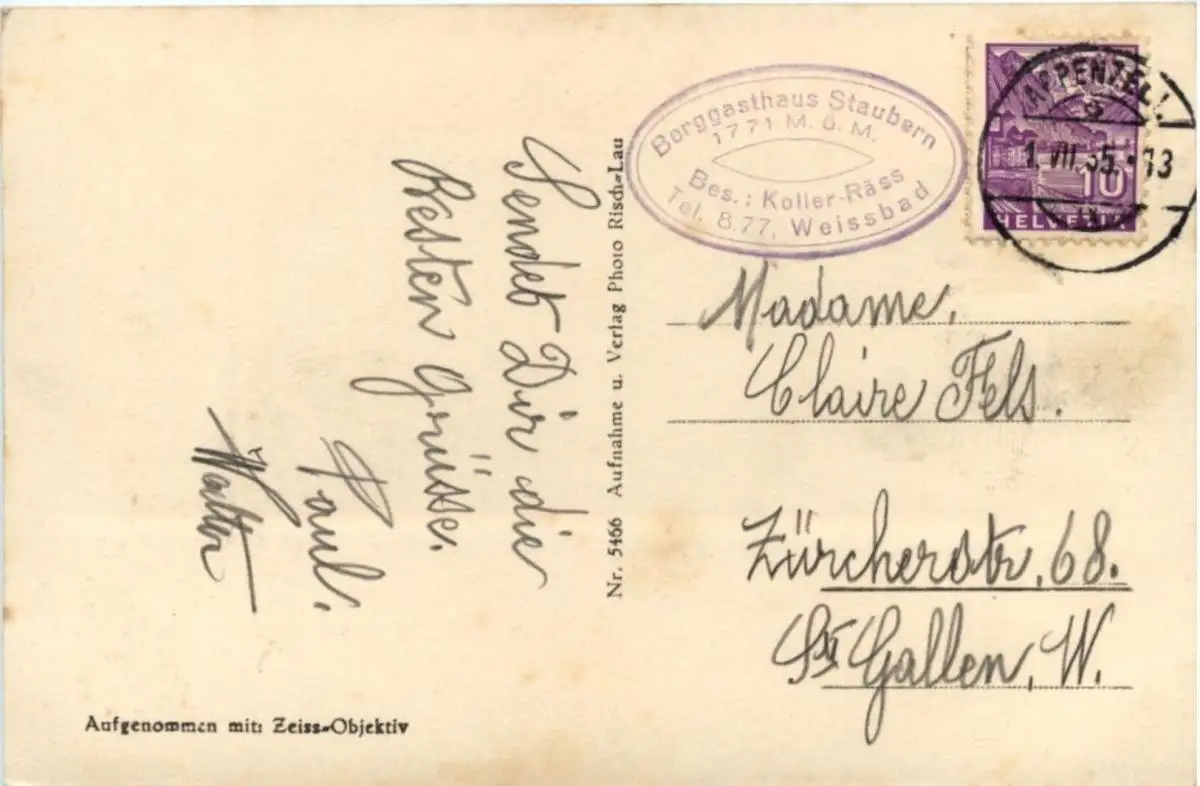 Sendet Dir die
Besten Grüsse.
Paul.
Walter
Aufgenommen mit: Zeiss-Objektiv
Nr. 5466 Aufnahme u. Verlag Photo Risch-Lau
Berggasthaus Staubern
1771 M. ü. M.
Bes.: Koller-Räss
Tel. 8.77, Weissbad
APPENZELL
1. VII. 35. - 13
10
HELVETIA
Madame,
Claire Fels.
Zürcherstr. 68.
St Gallen, W.